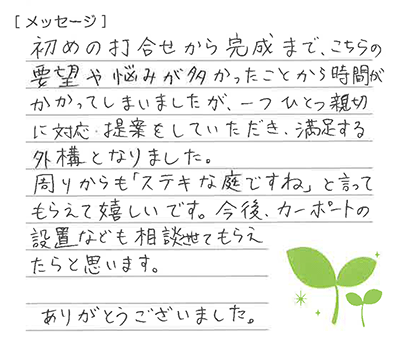 [ メッセージ ]
初めの打合せから完成まで、こちらの
要望や悩みが多かったことから時間が
かかってしまいましたが、一つひとつ親切
に対応・提案をしていただき、満足する
外構となりました。
周りからも「ステキな庭ですね」と言って
もらえて嬉しいです。今後、カーポートの
設置なども相談させてもらえ
たらと思います。
ありがとうございました。